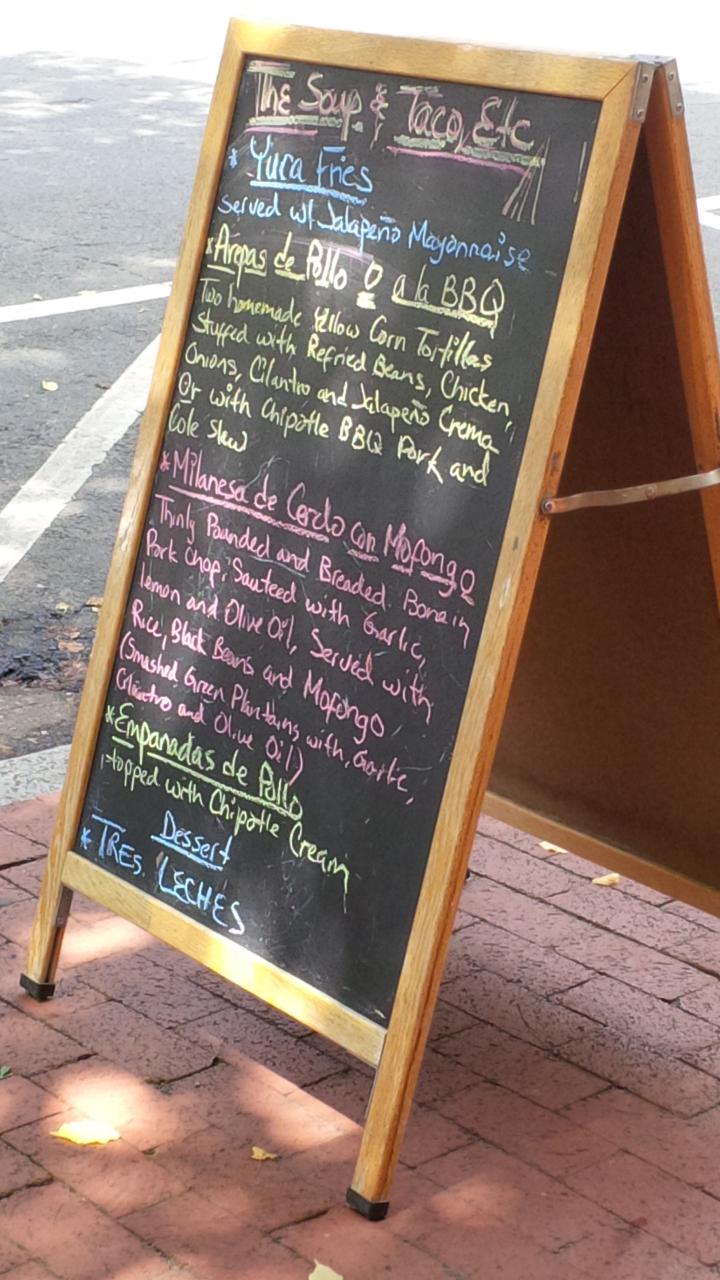 The Soup & Taco, Etc
* Yuca Fries
served w/ Jalapeño Mayonnaise
* Arepas de Pollo O a la BBQ
Two homemade Yellow Corn Tortillas
Stuffed with Refried Beans, Chicken,
Onions, Cilantro and Jalapeño Crema
Or with Chipotle BBQ Pork and
Cole Slaw
* Milanesa de Cerdo con Mofongo
Thinly Pounded and Breaded Bone in
Pork Chop, Sauteed with Garlic,
lemon and Olive Oil, Served with
Rice, Black Beans and Mofongo
(Smashed Green Plantains with, Garlic,
Cilantro and Olive Oil)
* Empanadas de Pollo
, topped with Chipotle Cream
Dessert
* TRES. LECHES